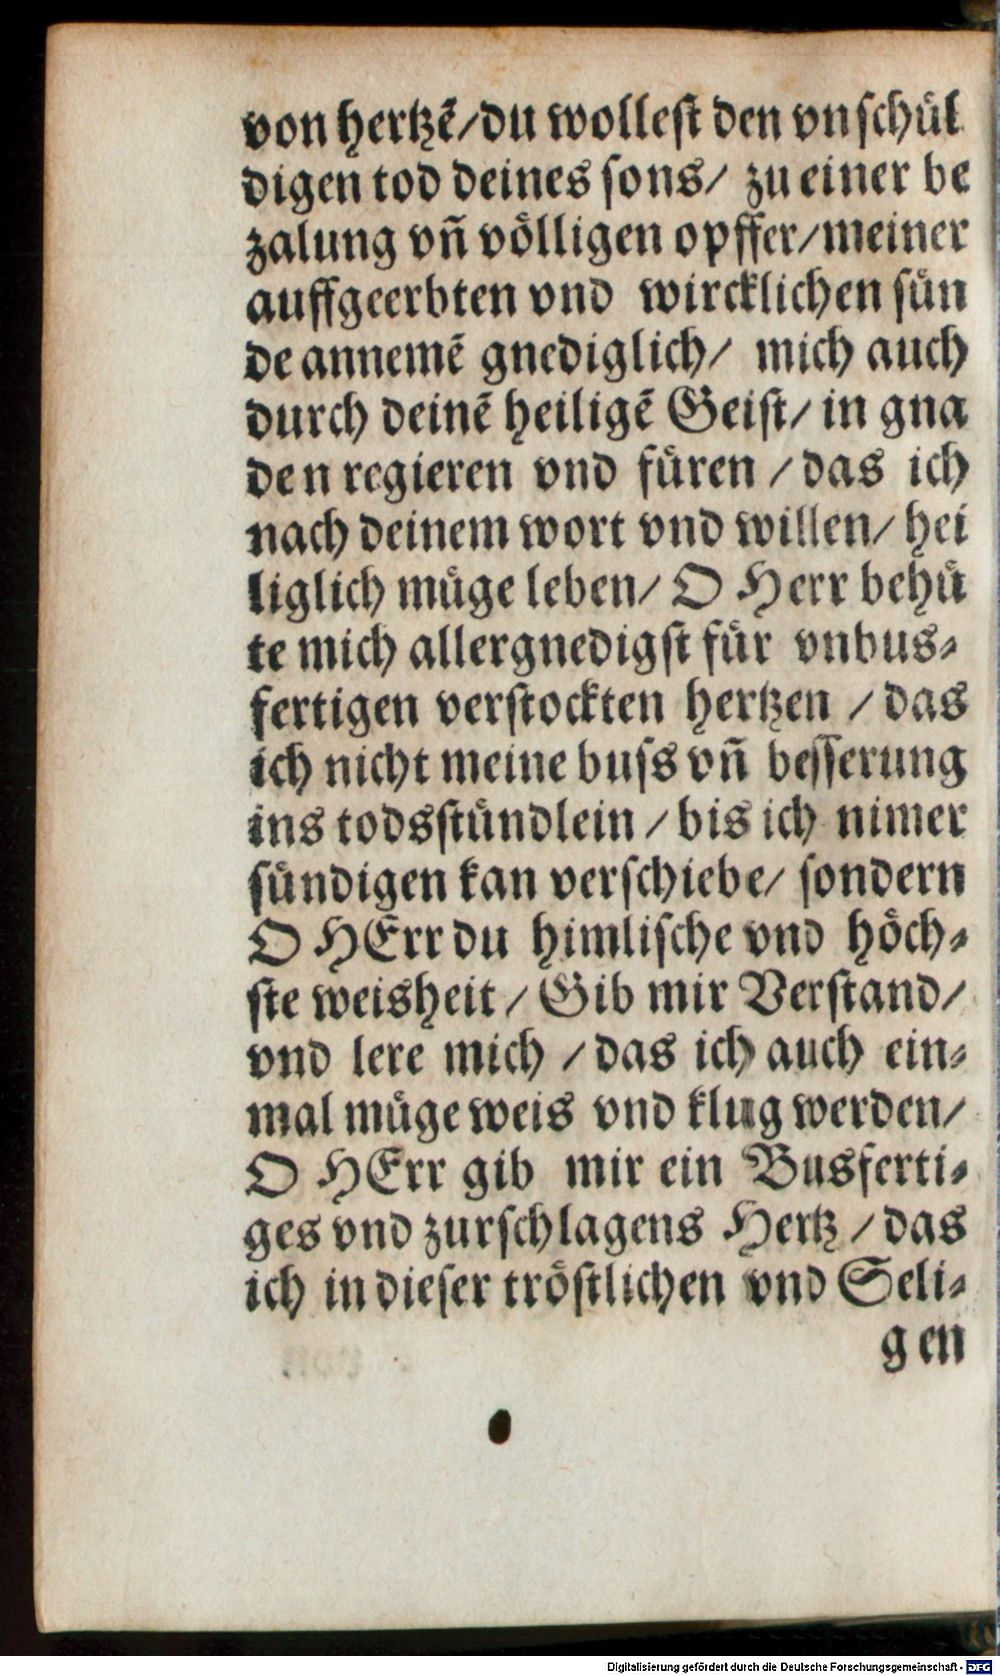 von hertzẽ/du wollest den vnschuͤl
digen tod deines sons/ zu einer be
zalung vñ voͤlligen opffer/meiner
auffgeerbten vnd wircklichen suͤn
de annemẽ gnediglich/ mich auch
durch deinẽ heiligẽ Geist/ in gna
den regieren vnd fuͤren /das ich
nach deinem wort vnd willen/ hei
liglich muͤge leben/ O Herr behuͤ
te mich allergnedigst fuͤr vnbus-
fertigen verstockten hertzen /das
ich nicht meine buſs vñ besserung
ins todsstuͤndlein /bis ich nimer
suͤndigen kan verschiebe/ sondern
O HErr du himlische vnd hoͤch-
ste weisheit /Gib mir Verstand/
vnd lere mich /das ich auch ein-
mal muͤge weis vnd klug werden/
O HErr gib mir ein Busferti-
ges vnd zurschlagens Hertz /das
ich in dieser troͤstlichen vnd Seli-
gen
Digitalisierung gefördert durch die Deutsche Forschungsgemeinschaft - DFG